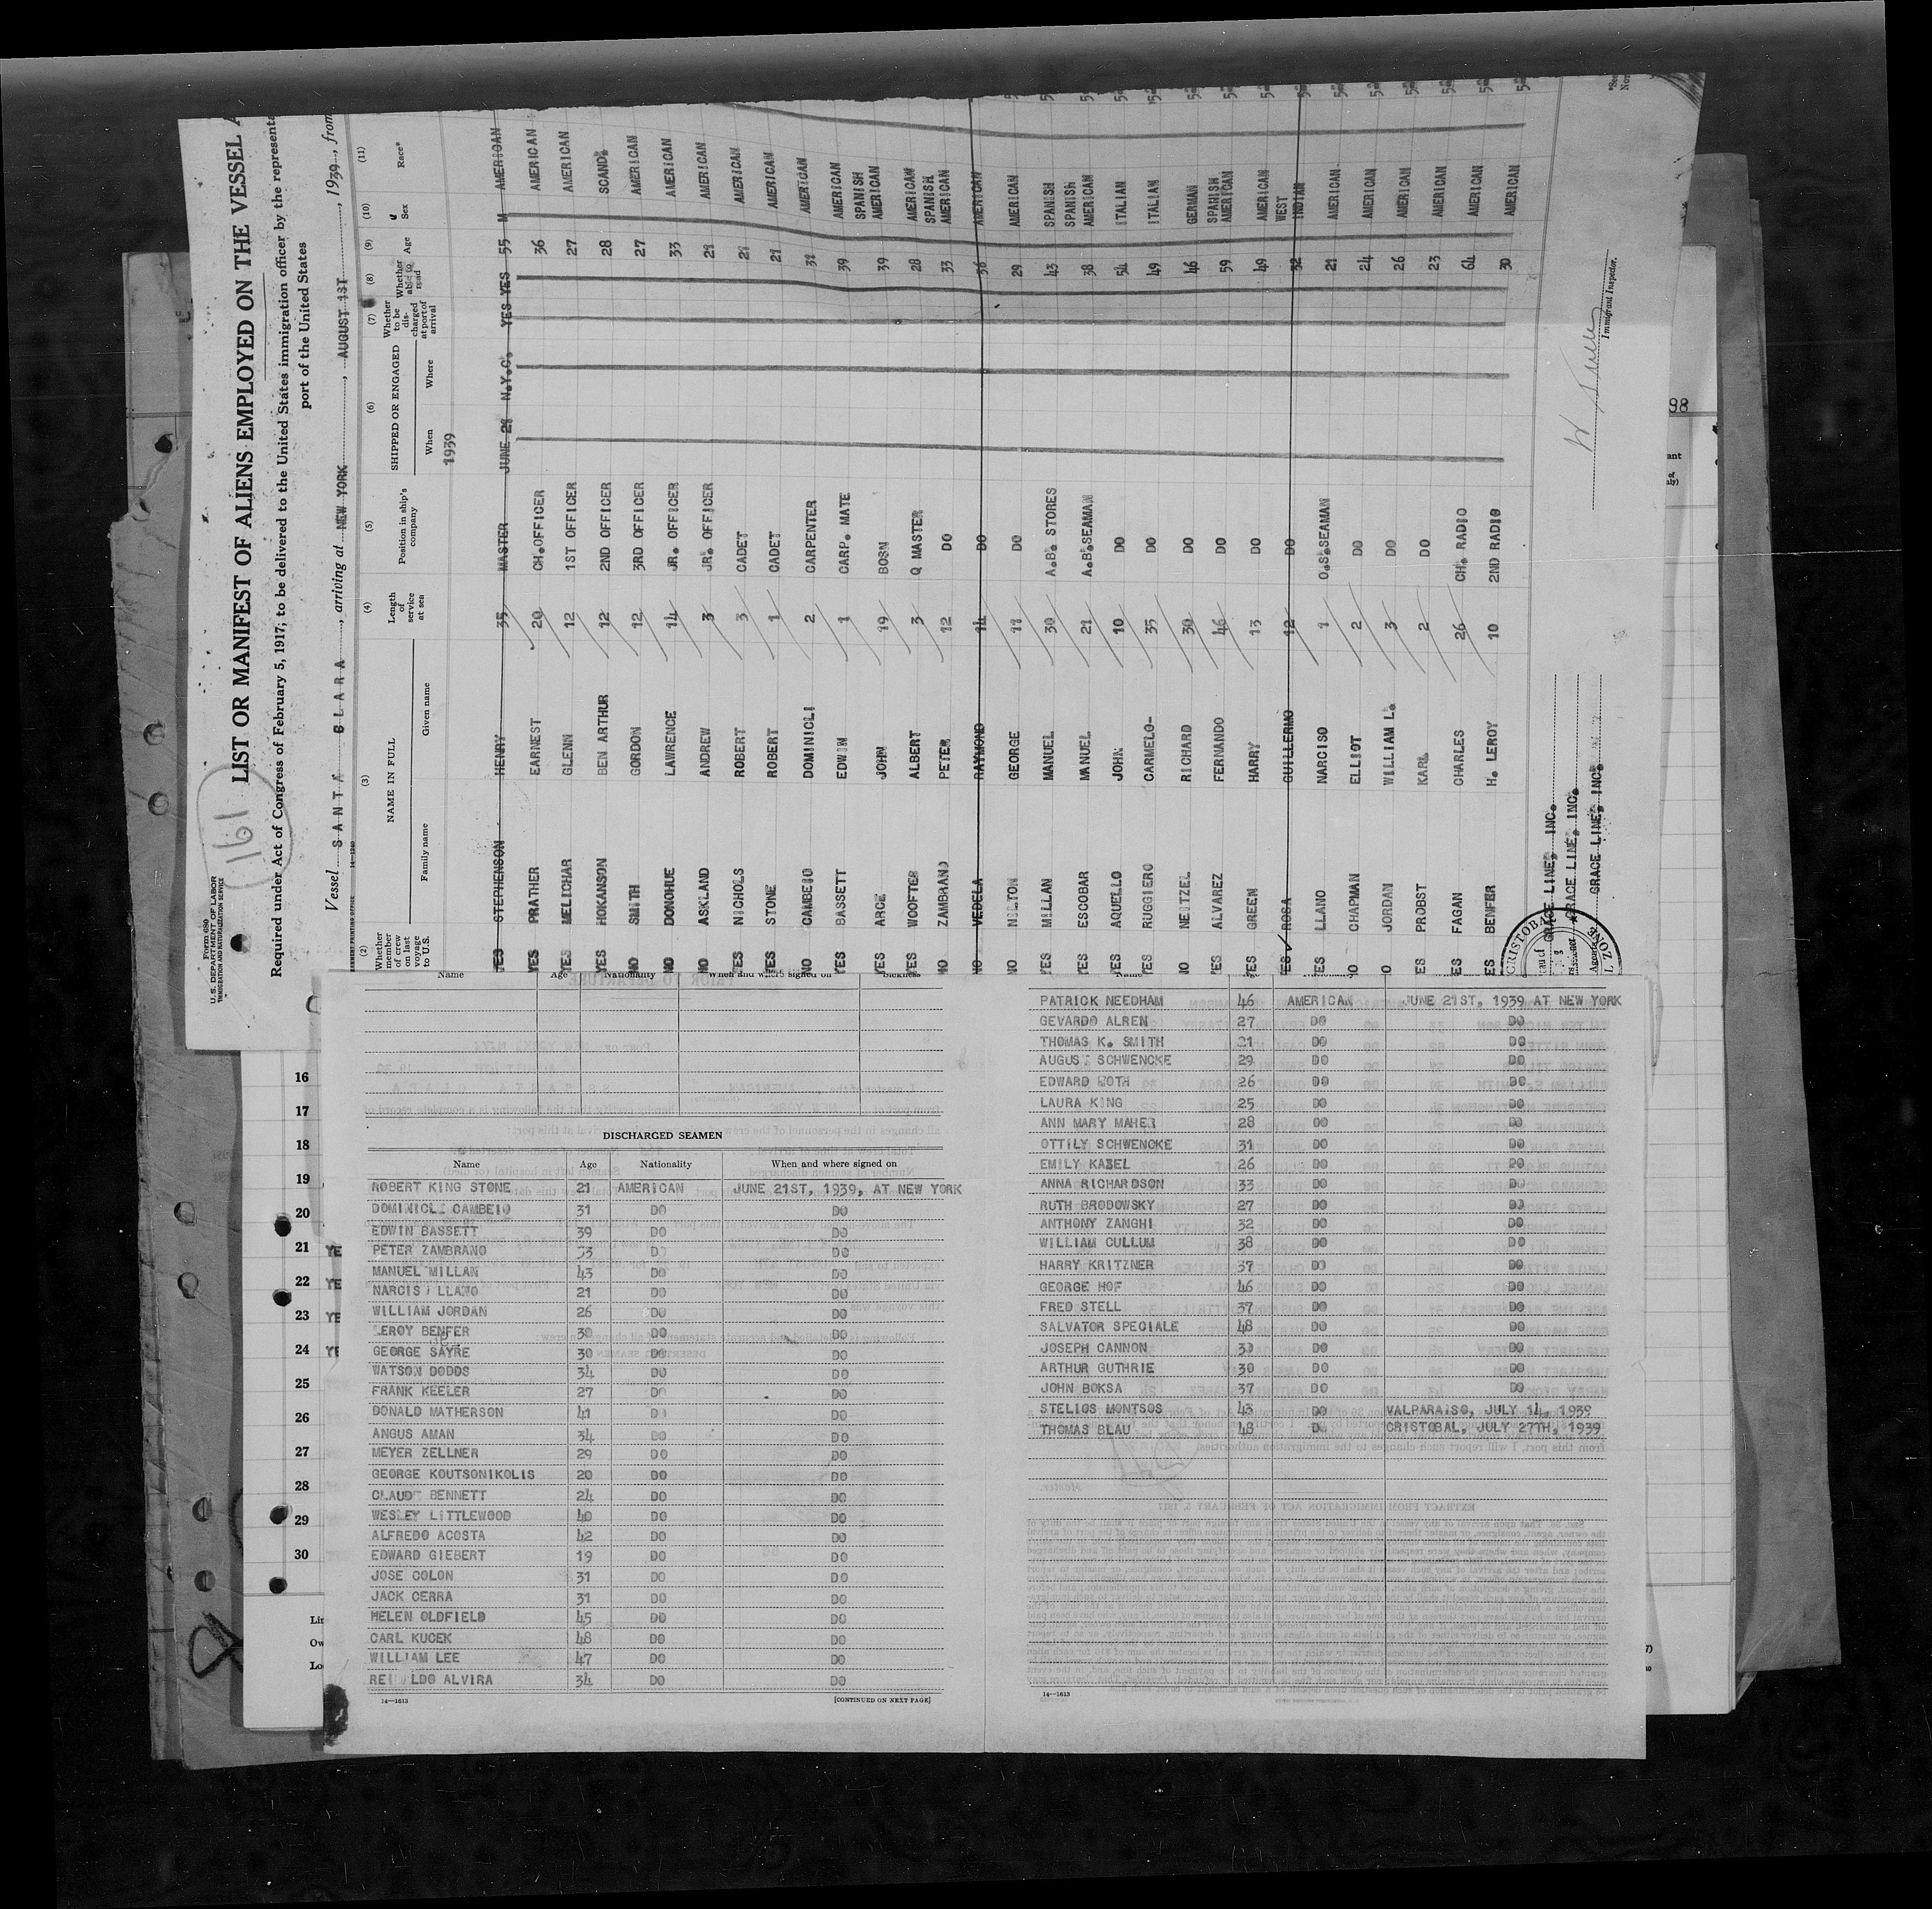 Form 680
U. S. DEPARTMENT OF LABOR
IMMIGRATION AND NATURALIZATION SERVICE
161
LIST OR MANIFEST OF ALIENS EMPLOYED ON THE VESSEL
Required under Act of Congress of February 5, 1917, to be delivered to the United States immigration officer by the representa
port of the United States
Vessel SANTA CLARA, arriving at NEW YORK, AUGUST 1ST, 1939, from
(2) (3) (4) (5) (6) (7) (8) (9) (10) (11)
Whether member of crew on last voyage to U.S. NAME IN FULL Family name Given name Length of service at sea Position in ship's company SHIPPED OR ENGAGED When Where Whether to be discharged at port of arrival Whether able to read Age Sex Race*
1939
YES STEPHENSON HENRY 35 MASTER JUNE 21 N.Y.C. YES YES 55 M AMERICAN
YES PRATHER EARNEST 20 CH.OFFICER 36 AMERICAN
YES MELICHAR GLENN 12 1ST OFFICER 27 AMERICAN
YES HOKANSON BEN ARTHUR 12 2ND OFFICER 28 SCAND.
NO SMITH GORDON 12 3RD OFFICER 27 AMERICAN
NO DONOHUE LAWRENCE 14 JR. OFFICER 33 AMERICAN
NO ASKLAND ANDREW 3 JR. OFFICER 21 AMERICAN
YES NICHOLS ROBERT 3 CADET 21 AMERICAN
YES STONE ROBERT 1 CADET 21 AMERICAN
NO CAMBEIO DOMINICLI 2 CARPENTER 31 AMERICAN
YES BASSETT EDWIN 1 CARP. MATE 39 AMERICAN
YES ARCE JOHN 19 BOSN 39 SPANISH AMERICAN
YES WOOFTER ALBERT 3 Q MASTER 28 AMERICAN
NO ZAMBRANO PETER 12 DO 33 SPANISH AMERICAN
NO VEDELA RAYMOND 14 DO 36 AMERICAN
NO NILTON GEORGE 11 DO 29 AMERICAN
YES MILLAN MANUEL 30 A.B. STORES 43 SPANISH
YES ESCOBAR MANUEL 21 A.B.SEAMAN 38 SPANISH AMERICAN
YES AQUELLO JOHN 10 DO 54 ITALIAN
YES RUGGIERO CARMELO- 35 DO 49 ITALIAN
NO NEITZEL RICHARD 30 DO 46 GERMAN
YES ALVAREZ FERNANDO 46 DO 59 SPANISH AMERICAN
YES GREEN HARRY 13 DO 49 AMERICAN
YES ROSA GUILLERMO 12 DO 32 WEST INDIAN
YES LLANO NARCISO 1 O.S.SEAMAN 21 AMERICAN
NO CHAPMAN ELLIOT 2 DO 24 AMERICAN
NO JORDAN WILLIAM L. 3 DO 26 AMERICAN
YES PROBST KARL 2 DO 23 AMERICAN
YES FAGAN CHARLES 26 CH. RADIO 64 AMERICAN
YES BENFER H. LEROY 10 2ND RADIO 30 AMERICAN
GRACE LINE, INC.
GRACE LINE, INC.
GRACE LINE, INC.
Immigrant Inspector.
CRISTOBAL
ZONE
98
16
17
18
19
20
21 YE
22 YE
23 YE
24 YE
25
26
27
28
29
30
Name Age Nationality When and where signed on
DISCHARGED SEAMEN
Name Age Nationality When and where signed on
ROBERT KING STONE 21 AMERICAN JUNE 21ST, 1939, AT NEW YORK
DOMINICLI CAMBEIO 31 DO DO
EDWIN BASSETT 39 DO DO
PETER ZAMBRANO 33 DO DO
MANUEL MILLAN 43 DO DO
NARCIS LLANO 21 DO DO
WILLIAM JORDAN 26 DO DO
LEROY BENFER 30 DO DO
GEORGE SAYRE 30 DO DO
WATSON DODDS 34 DO DO
FRANK KEELER 27 DO DO
DONALD MATHERSON 41 DO DO
ANGUS AMAN 34 DO DO
MEYER ZELLNER 29 DO DO
GEORGE KOUTSONIKOLIS 20 DO DO
CLAUD BENNETT 24 DO DO
WESLEY LITTLEWOOD 40 DO DO
ALFREDO ACOSTA 42 DO DO
EDWARD GIEBERT 19 DO DO
JOSE COLON 31 DO DO
JACK CERRA 31 DO DO
HELEN OLDFIELD 45 DO DO
CARL KUCEK 48 DO DO
WILLIAM LEE 47 DO DO
ALVIRA 34 DO DO
14—1613 [CONTINUED ON NEXT PAGE]
PATRICK NEEDHAM 46 AMERICAN JUNE 21ST, 1939 AT NEW YORK
GEVARDO ALREN 27 DO DO
THOMAS K. SMITH 21 DO DO
AUGUST SCHWENCKE 29 DO DO
EDWARD WOTH 26 DO DO
LAURA KING 25 DO DO
ANN MARY MAHER 28 DO DO
OTTILY SCHWENCKE 31 DO DO
EMILY KABEL 26 DO DO
ANNA RICHARDSON 33 DO DO
RUTH BRODOWSKY 27 DO DO
ANTHONY ZANGHI 32 DO DO
WILLIAM CULLUM 38 DO DO
HARRY KRITZNER 37 DO DO
GEORGE HOF 46 DO DO
FRED STELL 37 DO DO
SALVATOR SPECIALE 48 DO DO
JOSEPH CANNON 33 DO DO
ARTHUR GUTHRIE 30 DO DO
JOHN BOKSA 37 DO DO
STELIOS MONTSOS 43 DO VALPARAISO, JULY 14, 1939
THOMAS BLAU 48 DO CRISTOBAL, JULY 27TH, 1939
14—1613